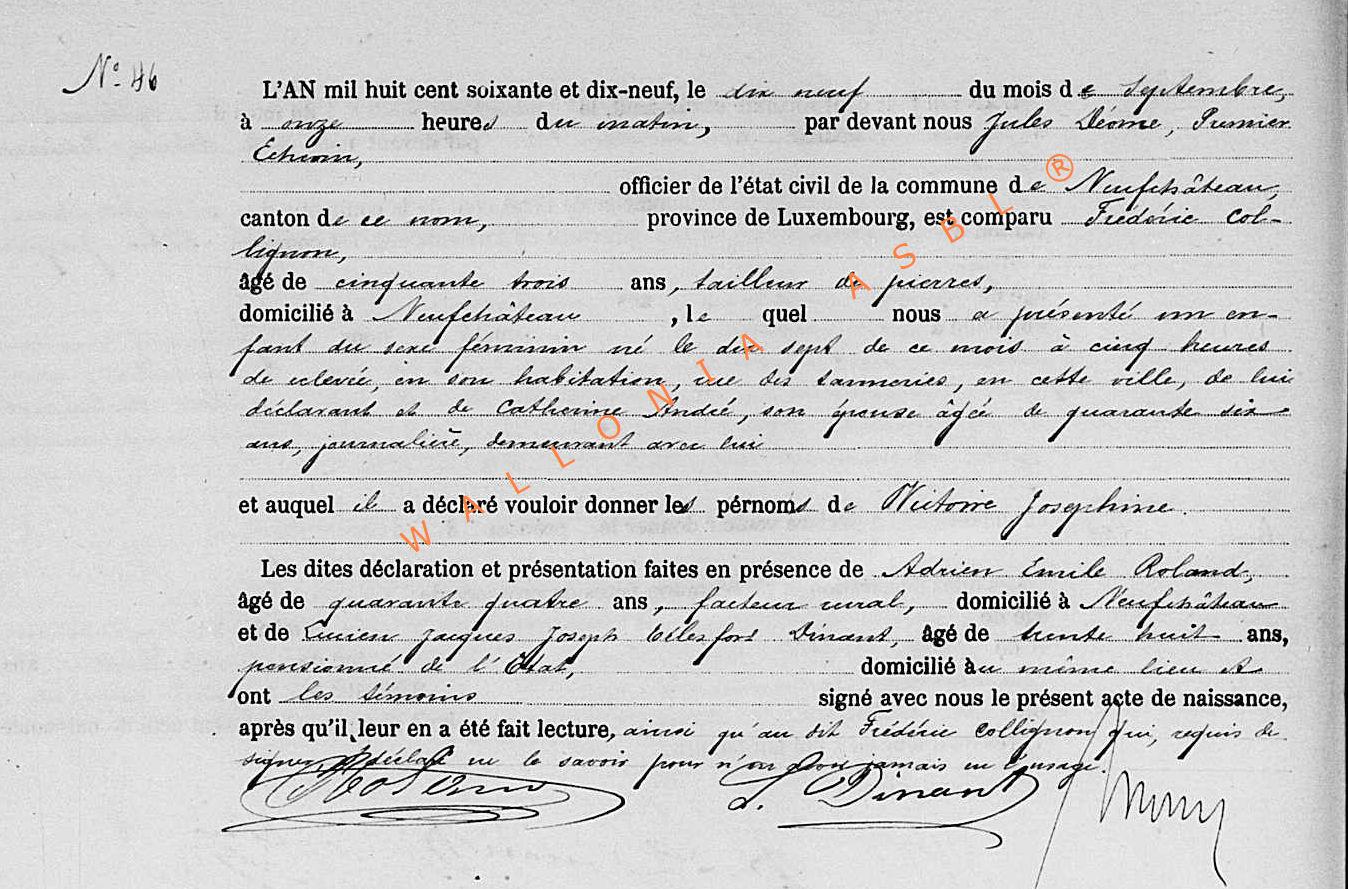 N° 46
L'AN mil huit cent soixante et dix-neuf, le dix neuf du mois de Septembre,
à onze heures du matin, par devant nous Jules Déome, Premier
Echevin,
officier de l'état civil de la commune de Neufchâteau,
canton de ce nom, province de Luxembourg, est comparu Frédéric Col-
lignon,
âgé de cinquante trois ans, tailleur de pierres,
domicilié à Neufchâteau, le quel nous a présenté un en-
fant du sexe féminin né le dix sept de ce mois à cinq heures
de relevée, en son habitation, rue des tanneries, en cette ville, de lui
déclarant et de Catherine André, son épouse âgée de quarante six
ans, journalière, demeurant avec lui
et auquel il a déclaré vouloir donner les pérnoms de Victoire Josephine.
Les dites déclaration et présentation faites en présence de Adrien Emile Roland,
âgé de quarante quatre ans, facteur rural, domicilié à Neufchâteau
et de Lucien Jacques Joseph Télesfort Dinant, âgé de trente huit ans,
pensionné de l'Etat, domicilié au même lieu et
ont les témoins signé avec nous le présent acte de naissance,
après qu'il leur en a été fait lecture, ainsi qu'au dit Frédéric Collignon qui, requis de
signer, a déclaré ne le savoir pour n'en avoir jamais eu l'usage.
L. Dinant
WALLONIA ASBL ®